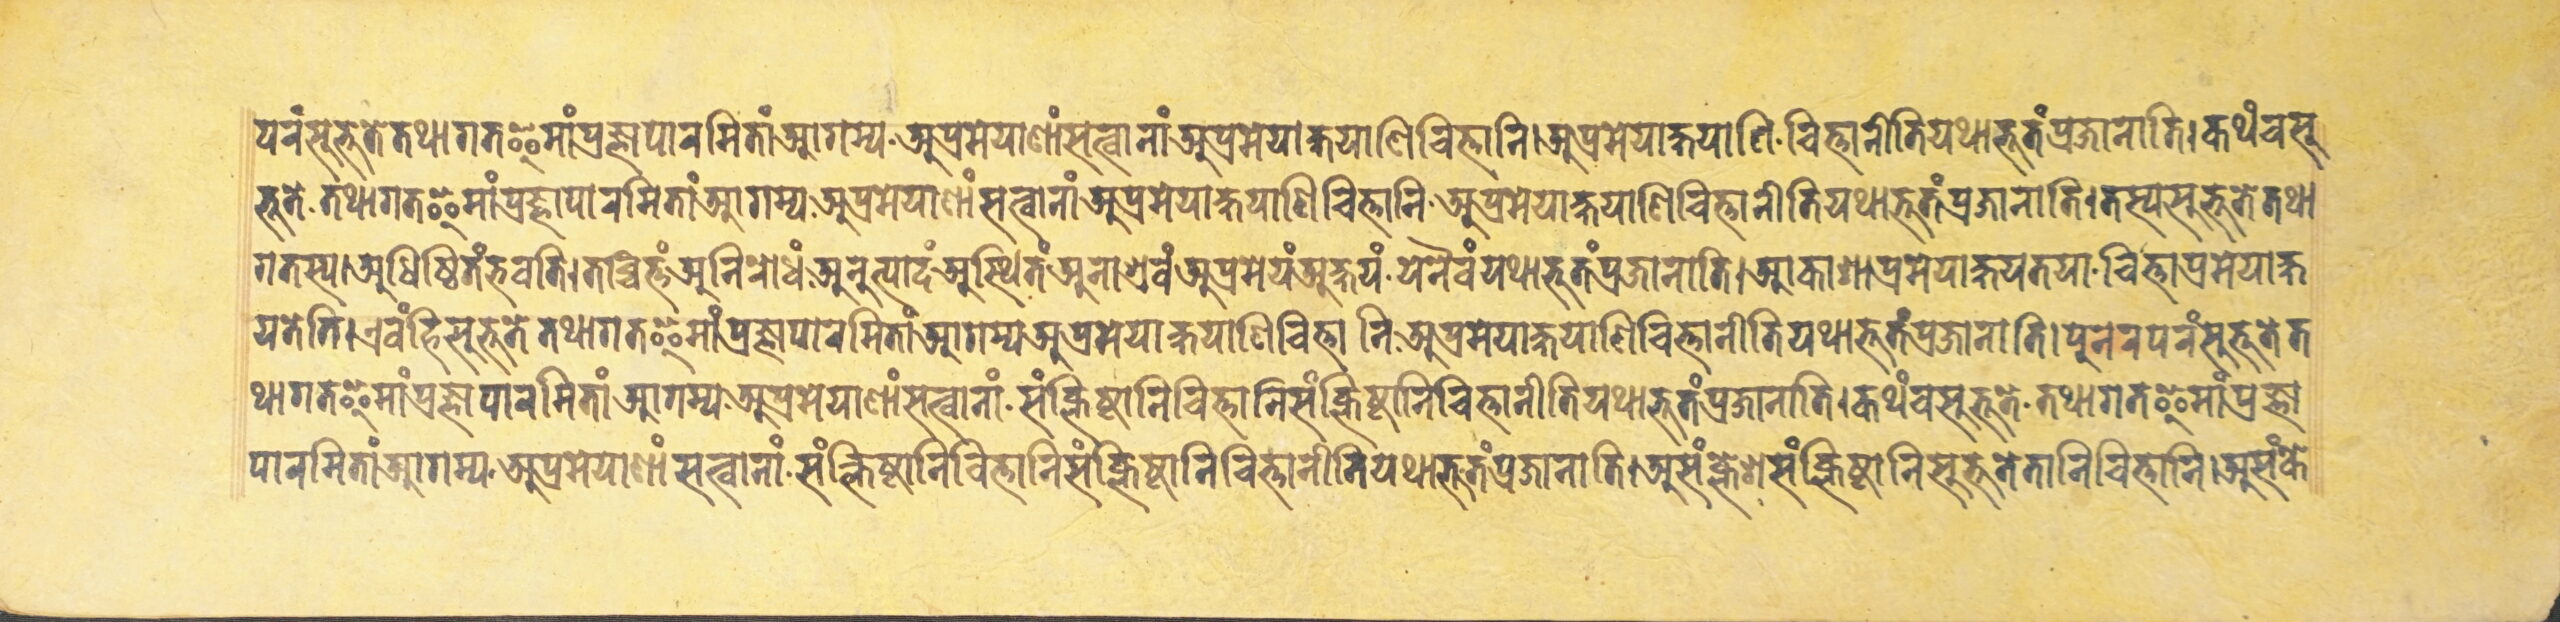 परंसुभूतेतथागतइमांप्रज्ञापारमितांआगम्य.अप्रमेयाणांसत्वानांअप्रमेयाक्षयाणिचित्तानि।अप्रमेयाक्षयाणि.चित्तानीतियथाभूतंप्रजानाति।कथंचसु
भूते.तथागतइमांप्रज्ञापारमितांआगम्य.अप्रमेयाणांसत्वानांअप्रमेयाक्षयाणिचित्तानि.अप्रमेयाक्षयाणिचित्तानीतियथाभूतंप्रजानाति।तस्यसुभूतेतथा
गतस्य।अधिष्ठितंभवति।तच्चित्तंअनिरोधं.अनुत्पादंअस्थितंअनाश्रवंअप्रमेयंअक्षयं.येनैवंयथाभूतंप्रजानाति।आकाशाप्रमेयाक्षयतया.चित्ताप्रमेयाक्ष
यतेति।एवंहिसुभूतेतथागतइमांप्रज्ञापारमितांआगम्यअप्रमेयाक्षयाणिचित्तानि.अप्रमेयाक्षयाणिचित्तानीतियथाभूतंप्रजानाति।पुनरपरंसुभूतेत
थागतइमांप्रज्ञापारमितांआगम्य.अप्रमेयाणांसत्वानां.संक्लिष्टानिचित्तानिसंक्लिष्टानिचित्तानीतियथाभूतंप्रजानाति।कथंचसुभूते.तथागतइमांप्रज्ञा
पारमितांआगम्य.अप्रमेयाणांसत्वानां.संक्लिष्टानिचित्तानिसंक्लिष्टानिचित्तानीतियथाभूतंप्रजानाति।असंक्लेशसंक्लिष्टानिसुभूतेतानिचित्तानि।असंके